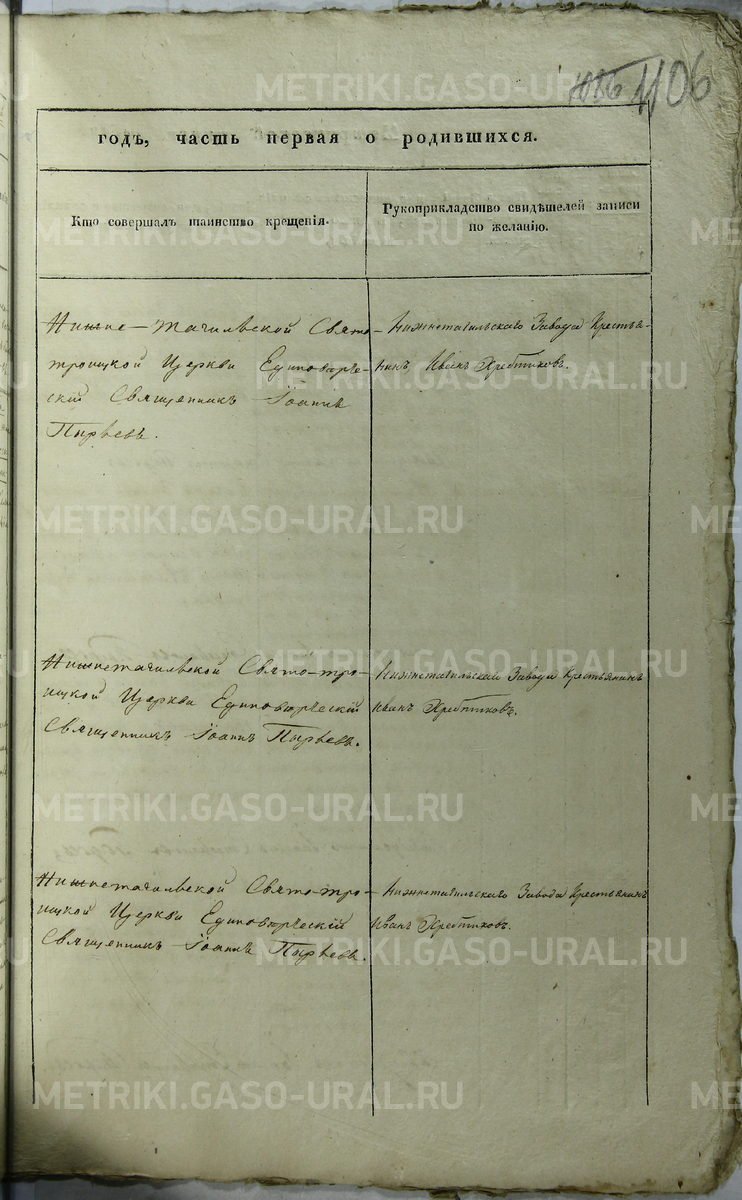 1086 1106
годъ, часть первая о родившихся.
Кто совершалъ таинство крещенія.
Рукоприкладство свидѣтелей записи
по желанію.
Нижне-Тагильской Свято-
троицкой Церкви Единовѣрче-
скій Священникъ Іоаннъ
Пырьевъ.
Нижнетагильскаго Завода Крестья-
нинъ Иванъ Хребтиковъ.
Нижнетагильской Свято-тро-
ицкой Церкви Единовѣрческій
Священникъ Іоаннъ Пырьевъ.
Нижнетагильскаго Завода Крестьянинъ
Иванъ Хребтиковъ.
Нижнетагильской Свято-тро-
ицкой Церкви Единовѣрческій
Священникъ Іоаннъ Пырьевъ.
Нижнетагильскаго Завода Крестьянинъ
Иванъ Хребтиковъ.
METRIKI.GASO-URAL.RU